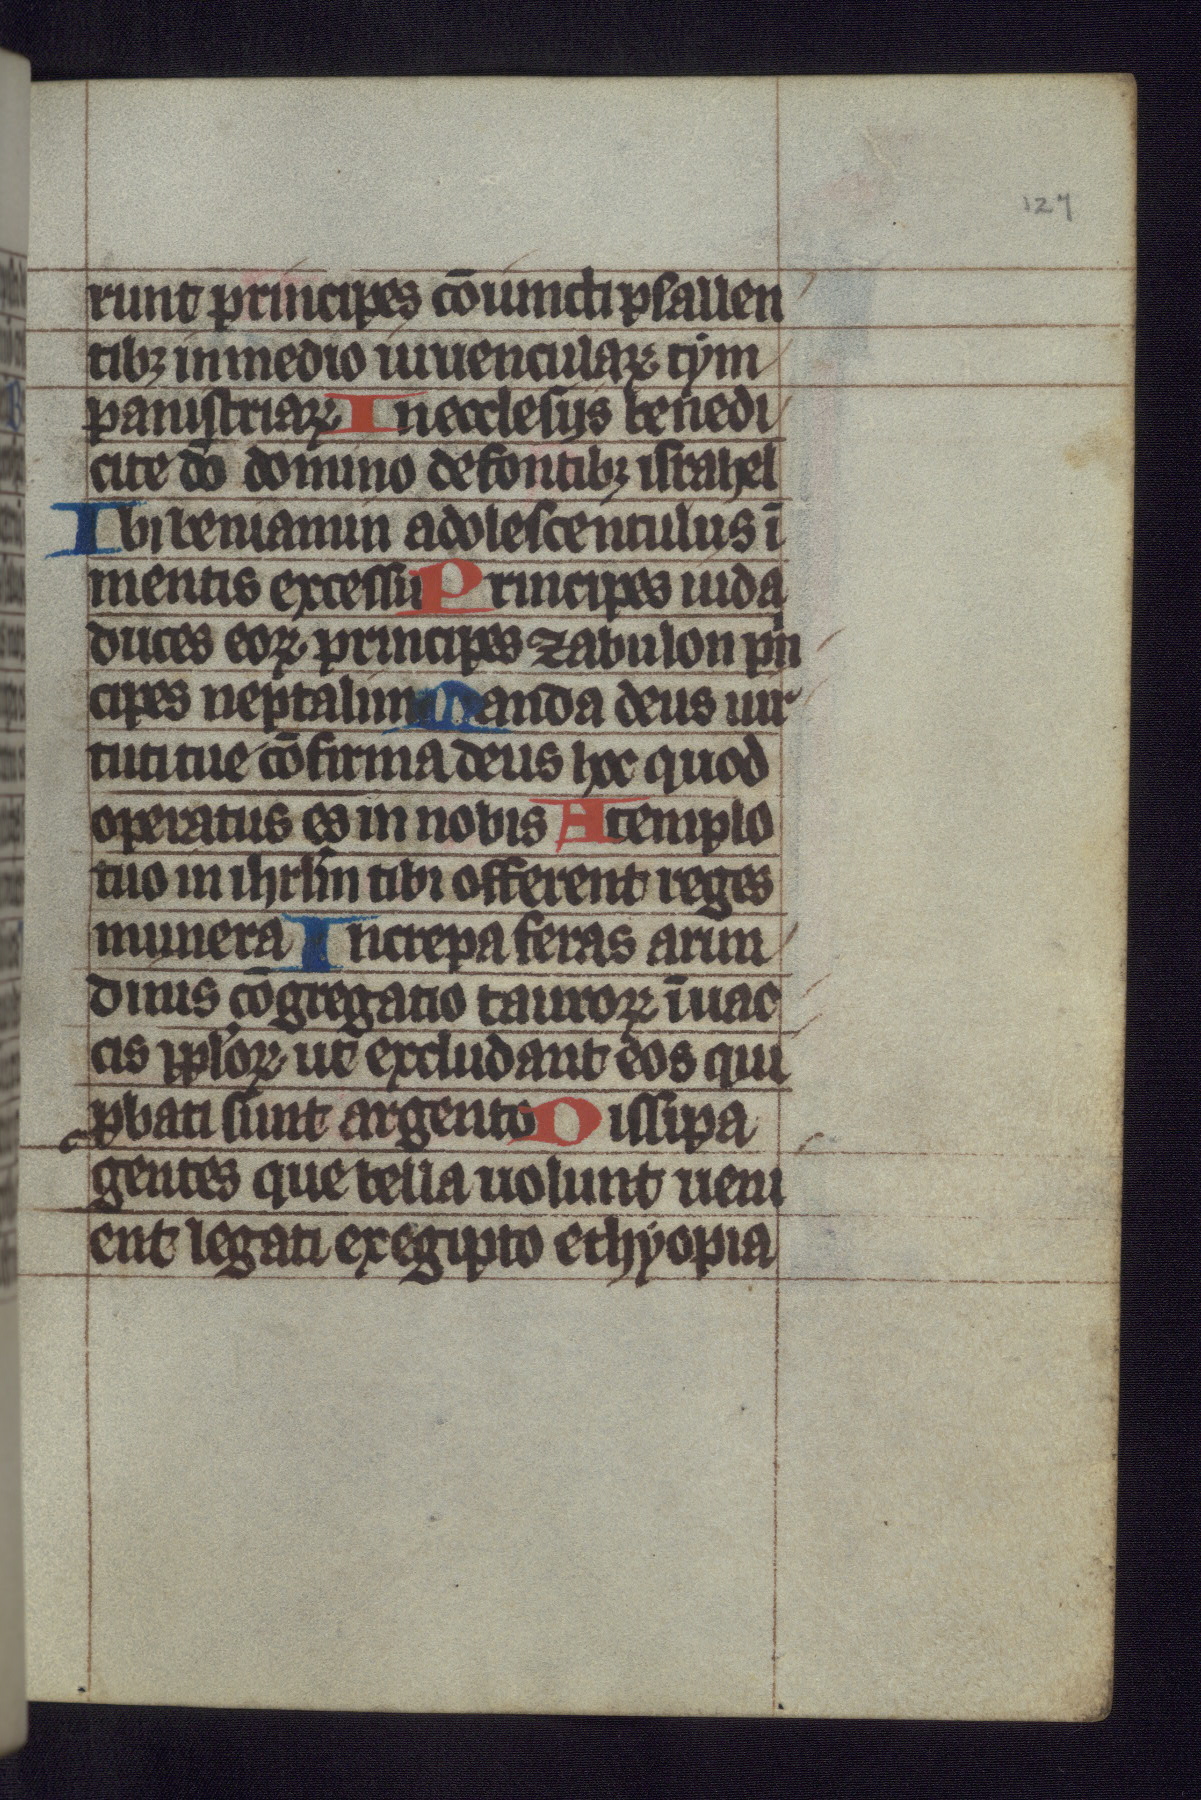 127
runt principes cōiuncti psallen
tibꝫ in medio iuuenculaꝝ tẏm
panistriaꝝ In ecclesiis benedi
cite dō domino de fontibꝫ israhel
Ibi beniamin adolescentulus ī
mentis excessu Principes iuda
duces eoꝝ principes zabulon pⁱn
cipes neptalim Manda deus uir
tuti tue cōfirma deus hoc quod
operatus es in nobis A templo
tuo in ihrlm̄ tibi offerent reges
munera Increpa feras arun
dinis cōgregatio tauroꝝ ī uac
cis pploꝝ ut excludant eos qui
ꝓbati sunt argento Dissipa
gentes que bella uolunt ueni
ent legati ex egipto ethẏopia